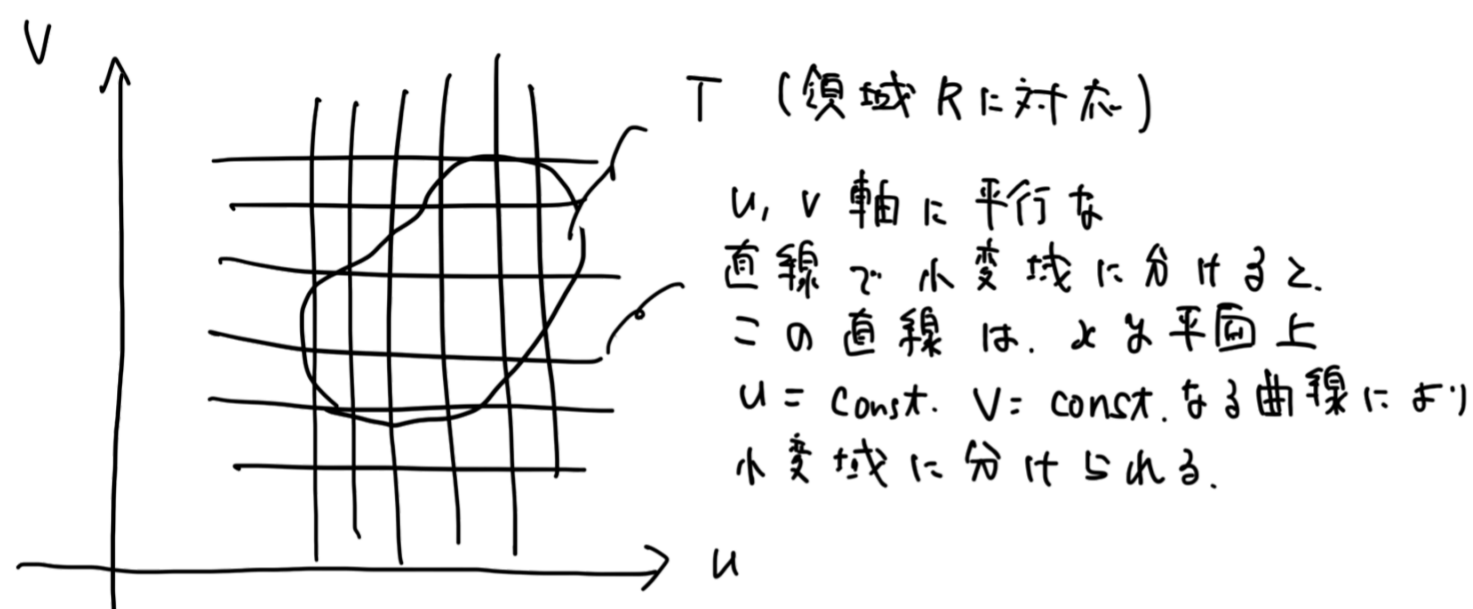 V
T (領域Rに対応)
u, v 軸に平行な
直線で小変域に分けると.
この直線は. xy平面上
u = const. v = const. なる曲線により
小変域に分けられる.
u